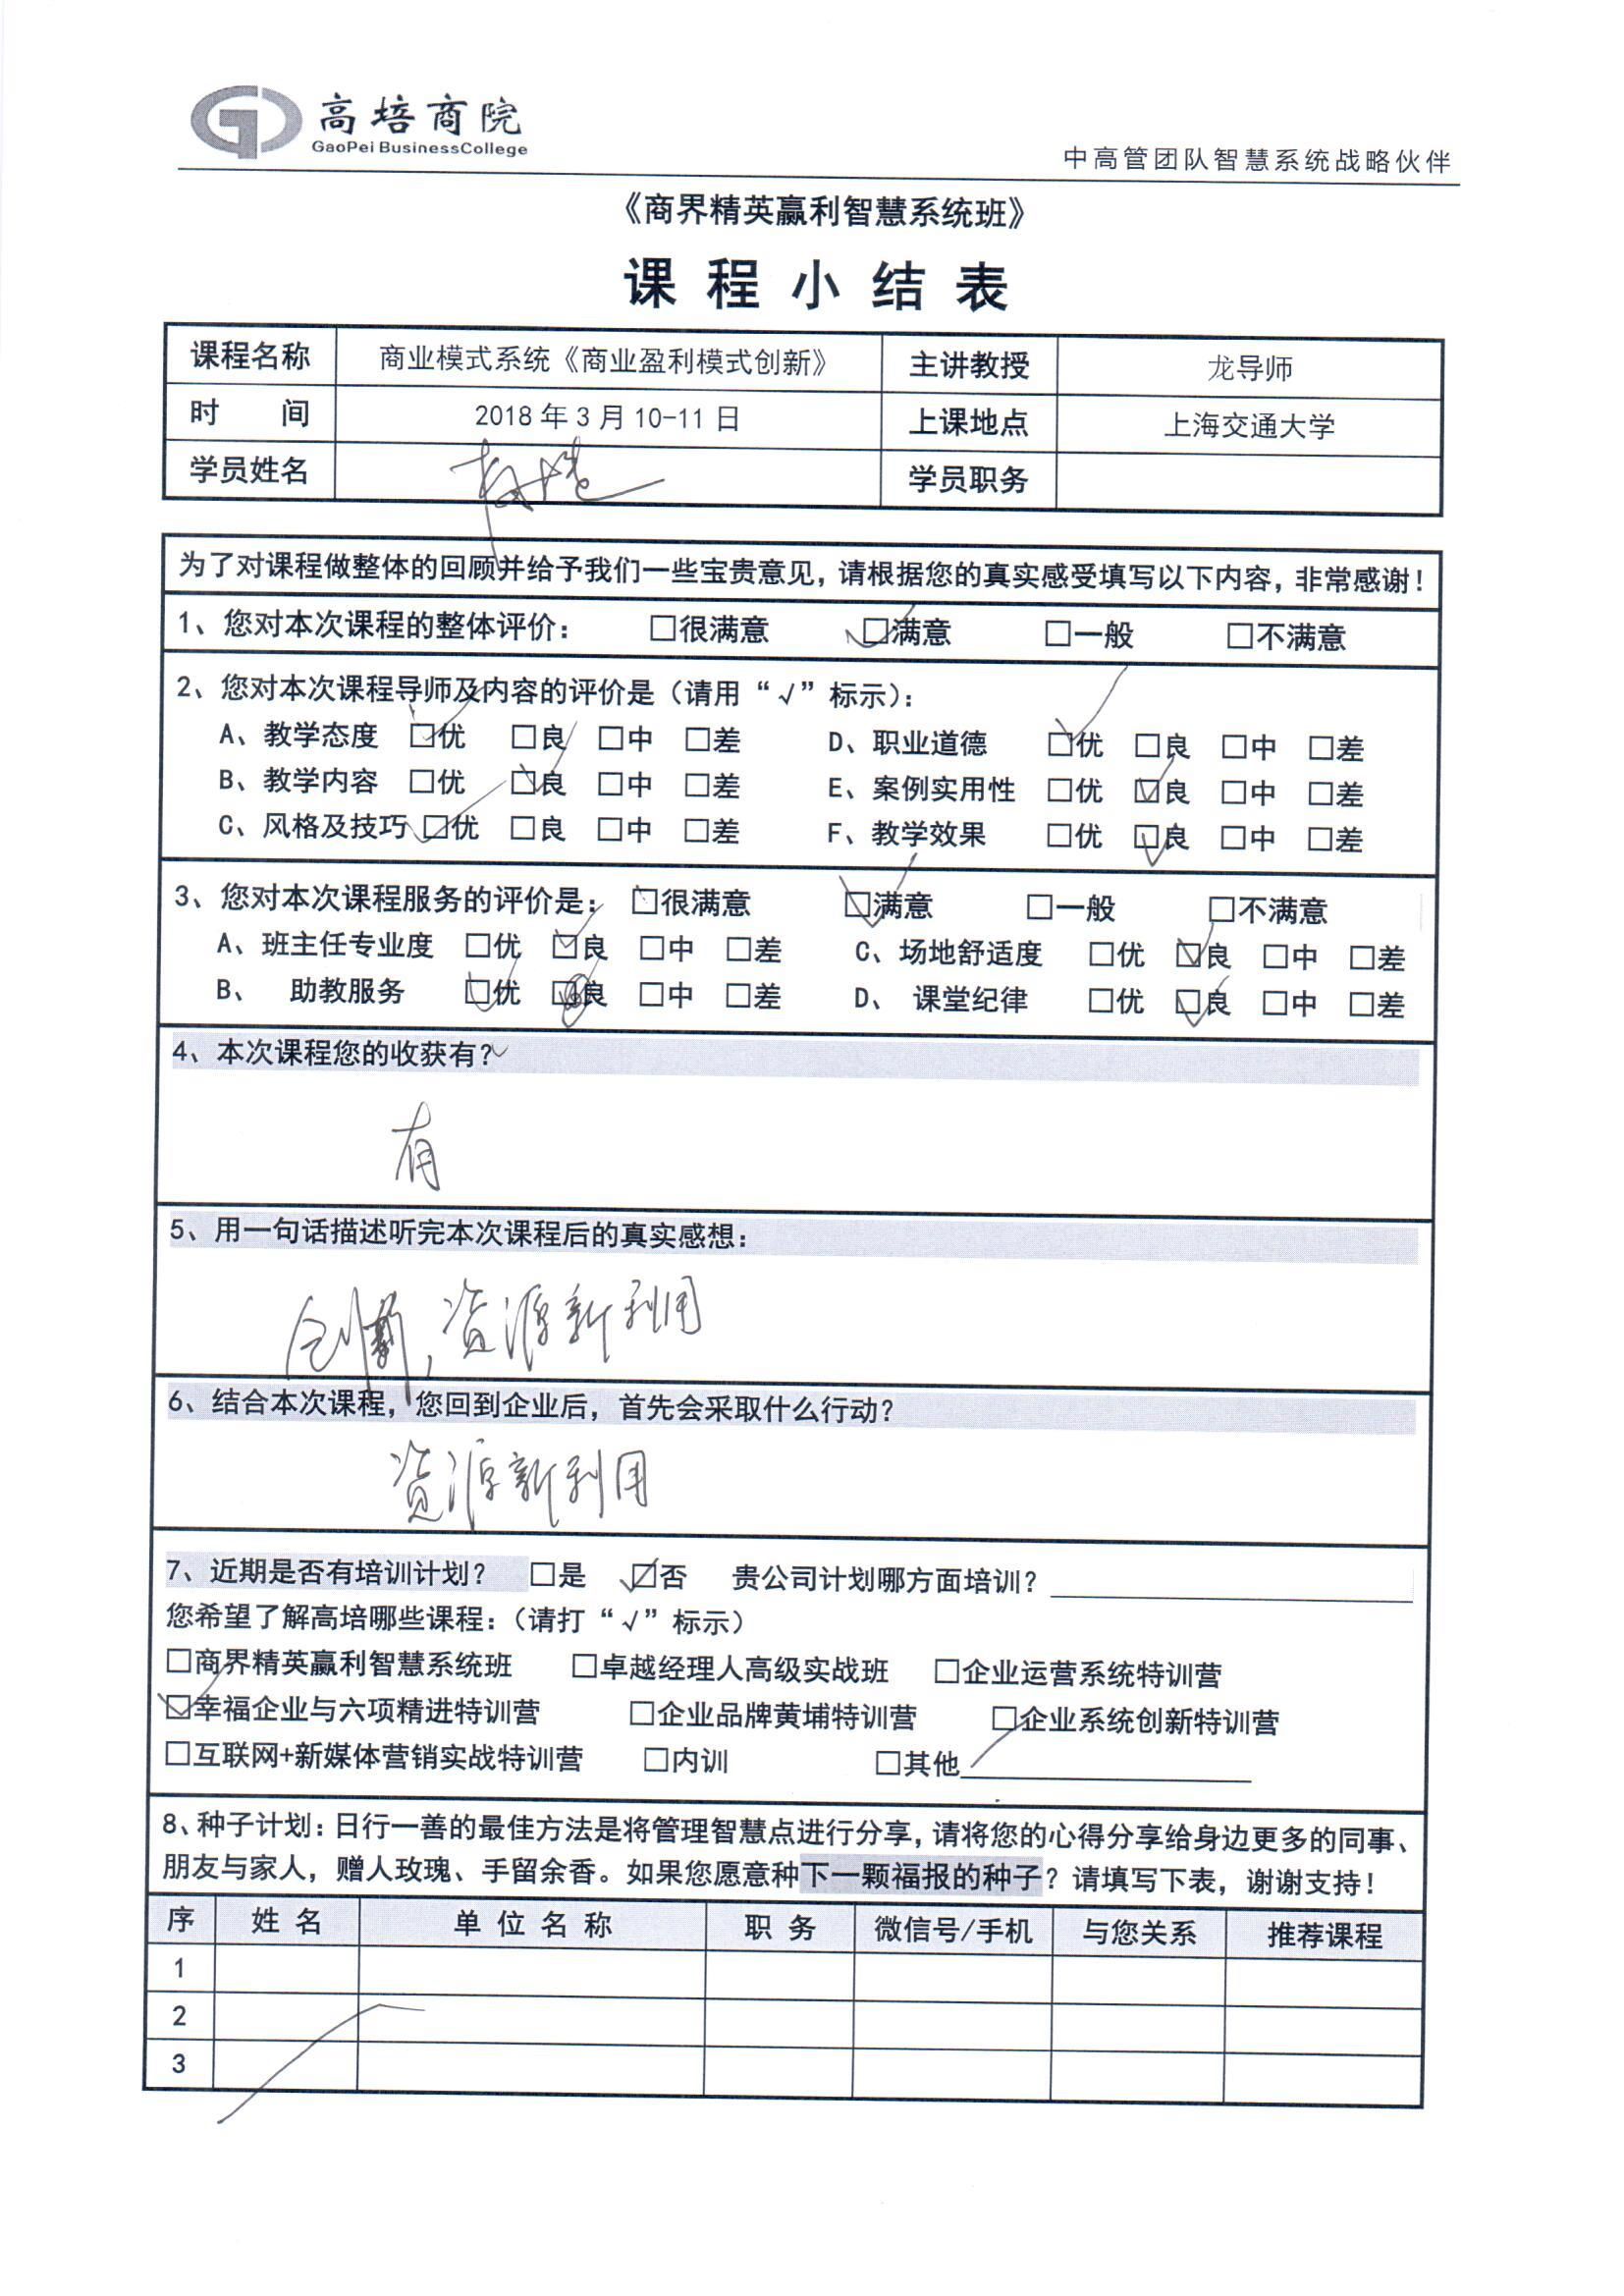 高培商院
GaoPei BusinessCollege
中高管团队智慧系统战略伙伴
《商界精英赢利智慧系统班》
课程小结表
课程名称 商业模式系统《商业盈利模式创新》 主讲教授 龙导师
时 间 2018年3月10-11日 上课地点 上海交通大学
学员姓名 学员职务
为了对课程做整体的回顾并给予我们一些宝贵意见，请根据您的真实感受填写以下内容，非常感谢！
1、您对本次课程的整体评价： □很满意 ☑满意 □一般 □不满意
2、您对本次课程导师及内容的评价是（请用“√”标示）：
A、教学态度 ☑优 □良 □中 □差 D、职业道德 ☑优 □良 □中 □差
B、教学内容 □优 ☑良 □中 □差 E、案例实用性 □优 ☑良 □中 □差
C、风格及技巧 ☑优 □良 □中 □差 F、教学效果 □优 ☑良 □中 □差
3、您对本次课程服务的评价是： □很满意 ☑满意 □一般 □不满意
A、班主任专业度 □优 ☑良 □中 □差 C、场地舒适度 □优 ☑良 □中 □差
B、 助教服务 ☑优 □良 □中 □差 D、 课堂纪律 □优 ☑良 □中 □差
4、本次课程您的收获有？
有
5、用一句话描述听完本次课程后的真实感想：
创新，资源新利用
6、结合本次课程，您回到企业后，首先会采取什么行动？
资源新利用
7、近期是否有培训计划？ □是 ☑否 贵公司计划哪方面培训？
您希望了解高培哪些课程：（请打“√”标示）
□商界精英赢利智慧系统班 □卓越经理人高级实战班 □企业运营系统特训营
☑幸福企业与六项精进特训营 □企业品牌黄埔特训营 □企业系统创新特训营
□互联网+新媒体营销实战特训营 □内训 □其他
8、种子计划：日行一善的最佳方法是将管理智慧点进行分享，请将您的心得分享给身边更多的同事、
朋友与家人，赠人玫瑰、手留余香。如果您愿意种下一颗福报的种子？请填写下表，谢谢支持！
序 姓名 单位名称 职务 微信号/手机 与您关系 推荐课程
1
2
3